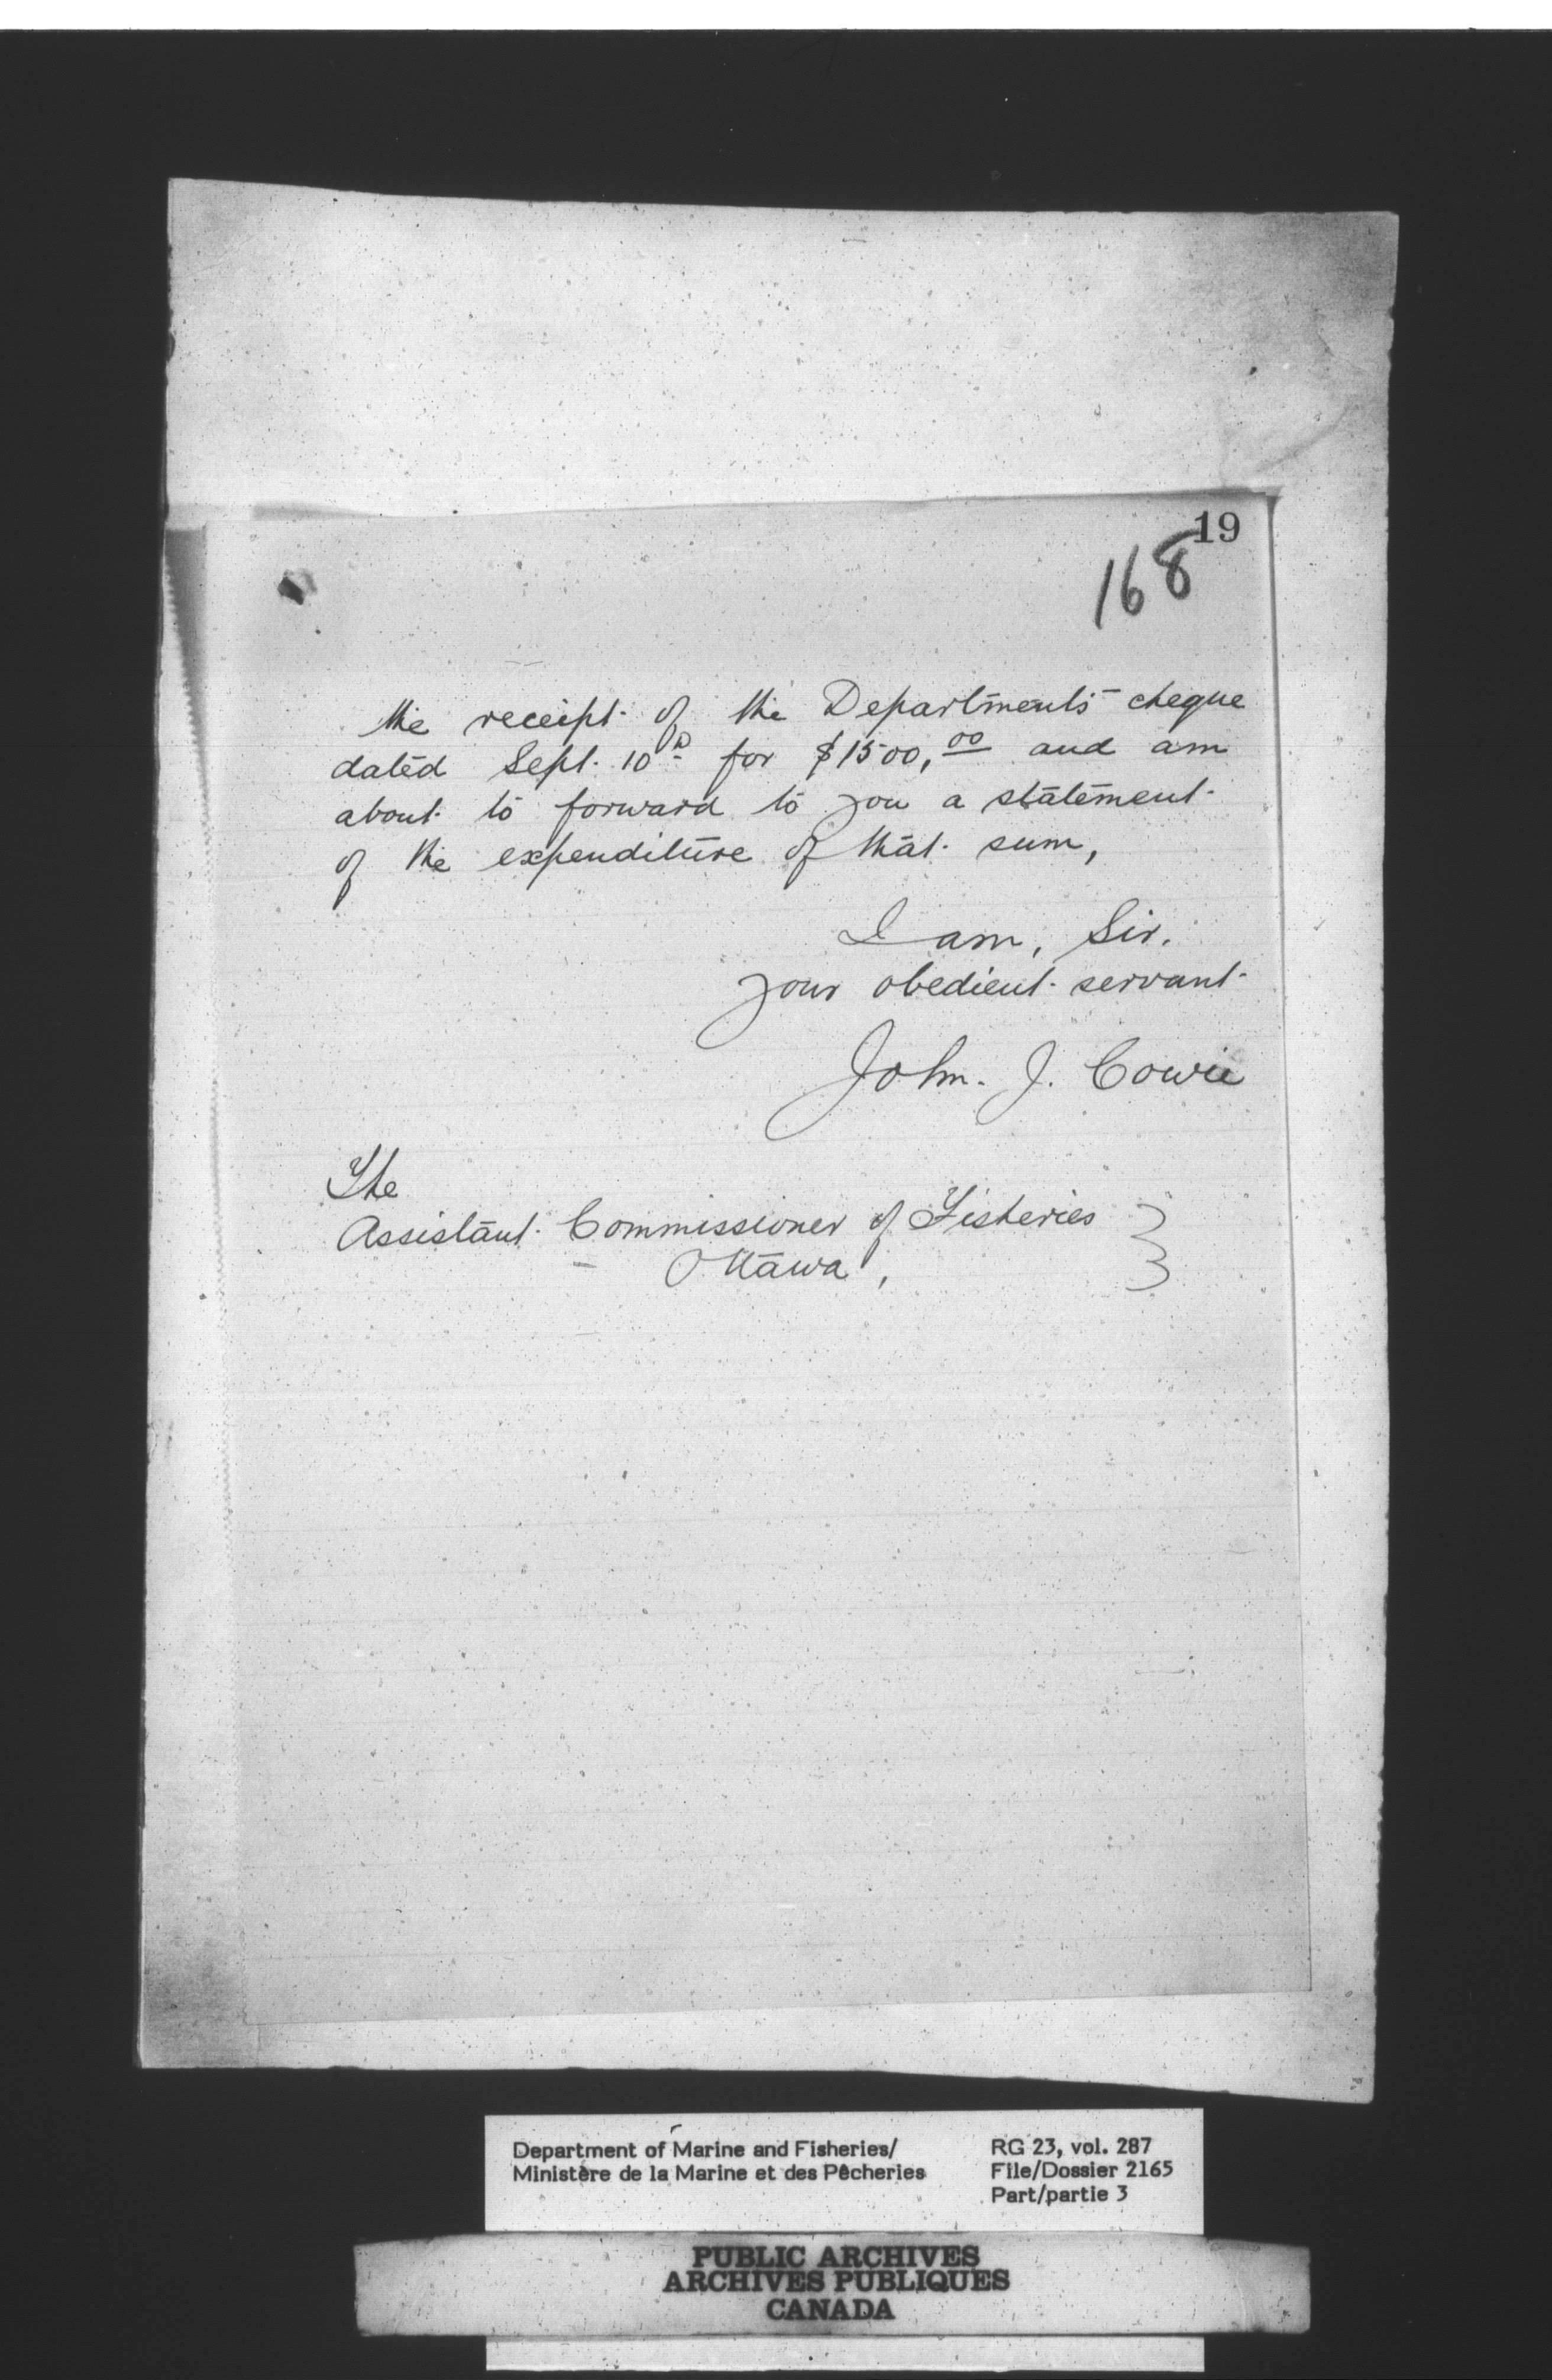 19
168
the receipt of the Departments cheque
dated Sept. 10th for $1500,00 and am
about to forward to you a statement
of the expenditure of that sum,
I am, Sir.
your obedient servant
John. J. Cowie
The
Assistant Commissioner of Fisheries
Ottawa,
Department of Marine and Fisheries/
Ministère de la Marine et des Pêcheries
RG 23, vol. 287
File/Dossier 2165
Part/partie 3
PUBLIC ARCHIVES
ARCHIVES PUBLIQUES
CANADA